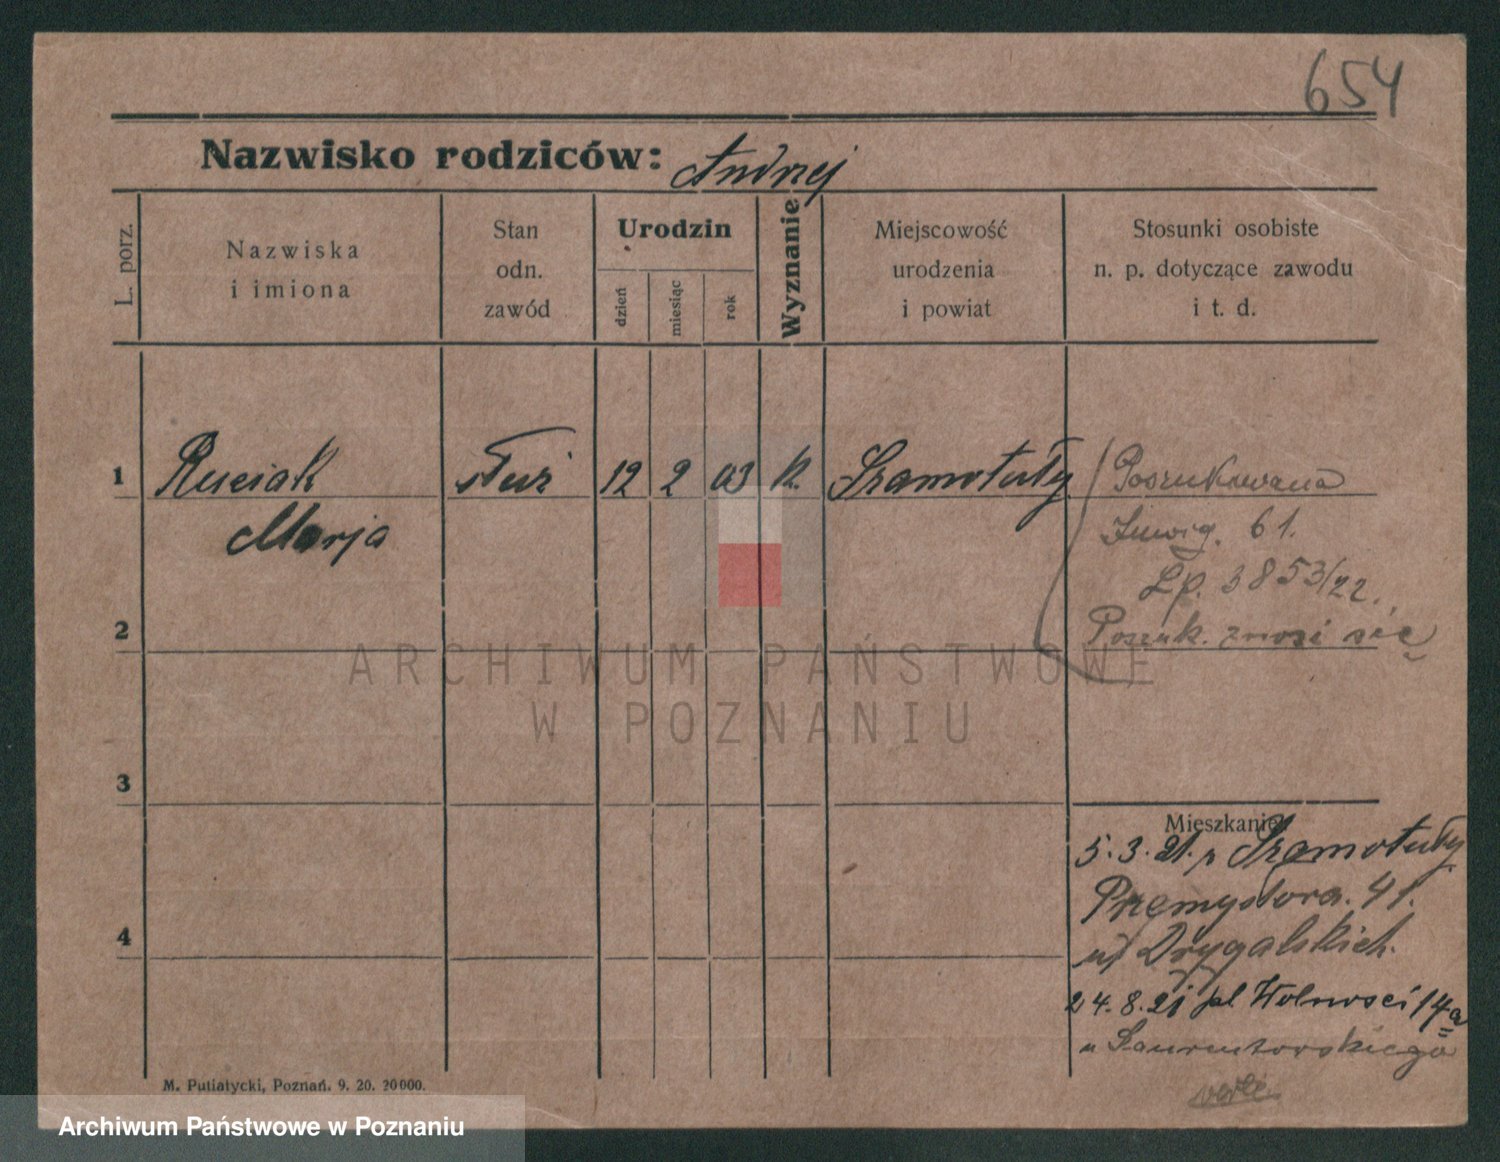 654
Nazwisko rodziców: Andrzej
L. porz.
Nazwiska
i imiona
Stan
odn.
zawód
Urodzin
dzień
miesiąc
rok
Wyznanie
Miejscowość
urodzenia
i powiat
Stosunki osobiste
n. p. dotyczące zawodu
i t. d.
1 Rusiak służ 12 2 03 k. Szamotuły Poszukiwana
Marja
Inwig. 61.
Lp. 3853/22.
2 Poszuk. znosi się
ARCHIWUM PAŃSTWOWE
W POZNANIU
3
Mieszkanie
5.3.21. z Szamotuły
Przemysłowa. 41.
4 u/ Drygalskich.
24.8.21 pl Wolności 14a
u
verte
M. Putiatycki, Poznań. 9. 20. 20000.
Archiwum Państwowe w Poznaniu